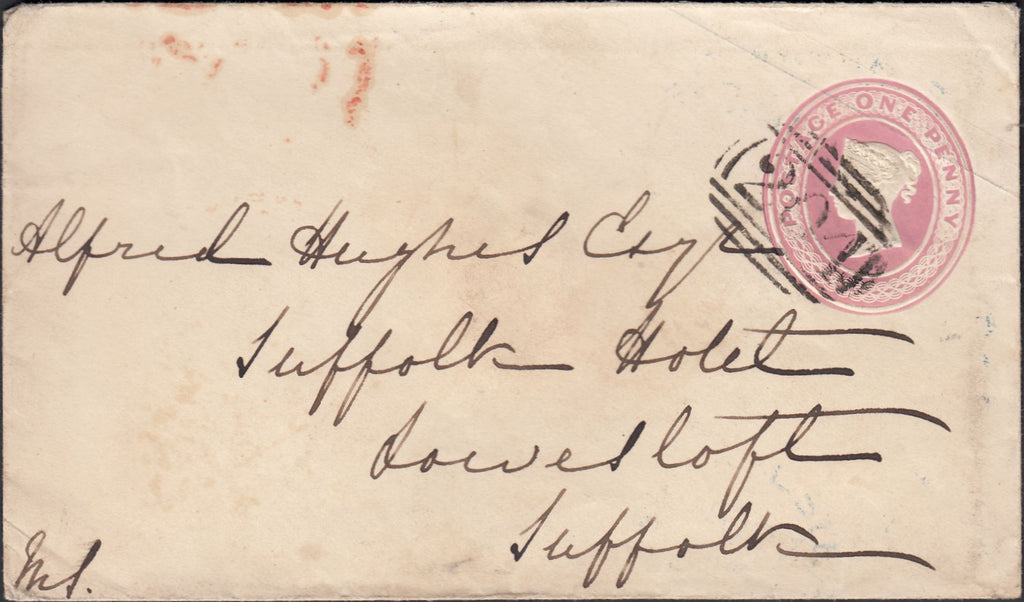 POSTAGE ONE PENNY
Alfred Hughes Esqr
Suffolk Hotel
Lowestoft
Suffolk